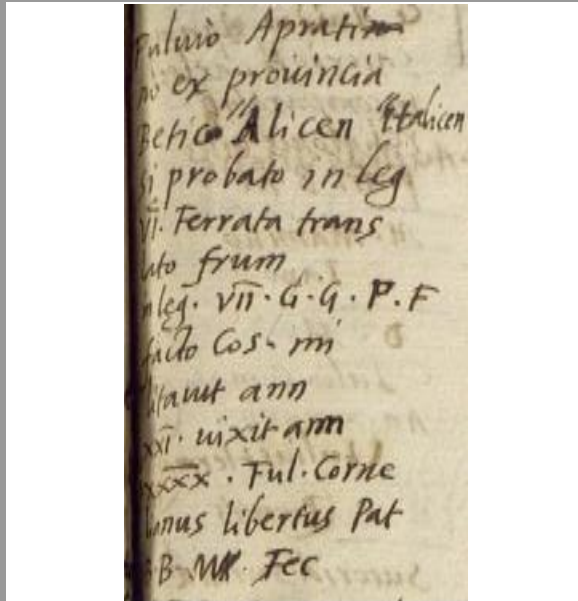 Fulvio Apratia
no ex prouincia
Betico "Alicen "Italicen
si probato in leg
VI. Ferrata trans
lato frum
n leg. VII. G. G. P. F
facto Cos. mi
litauit ann
XXI. uixit ann
XXXX. Ful. Corne
lianus libertus Pat
B. M. Fec